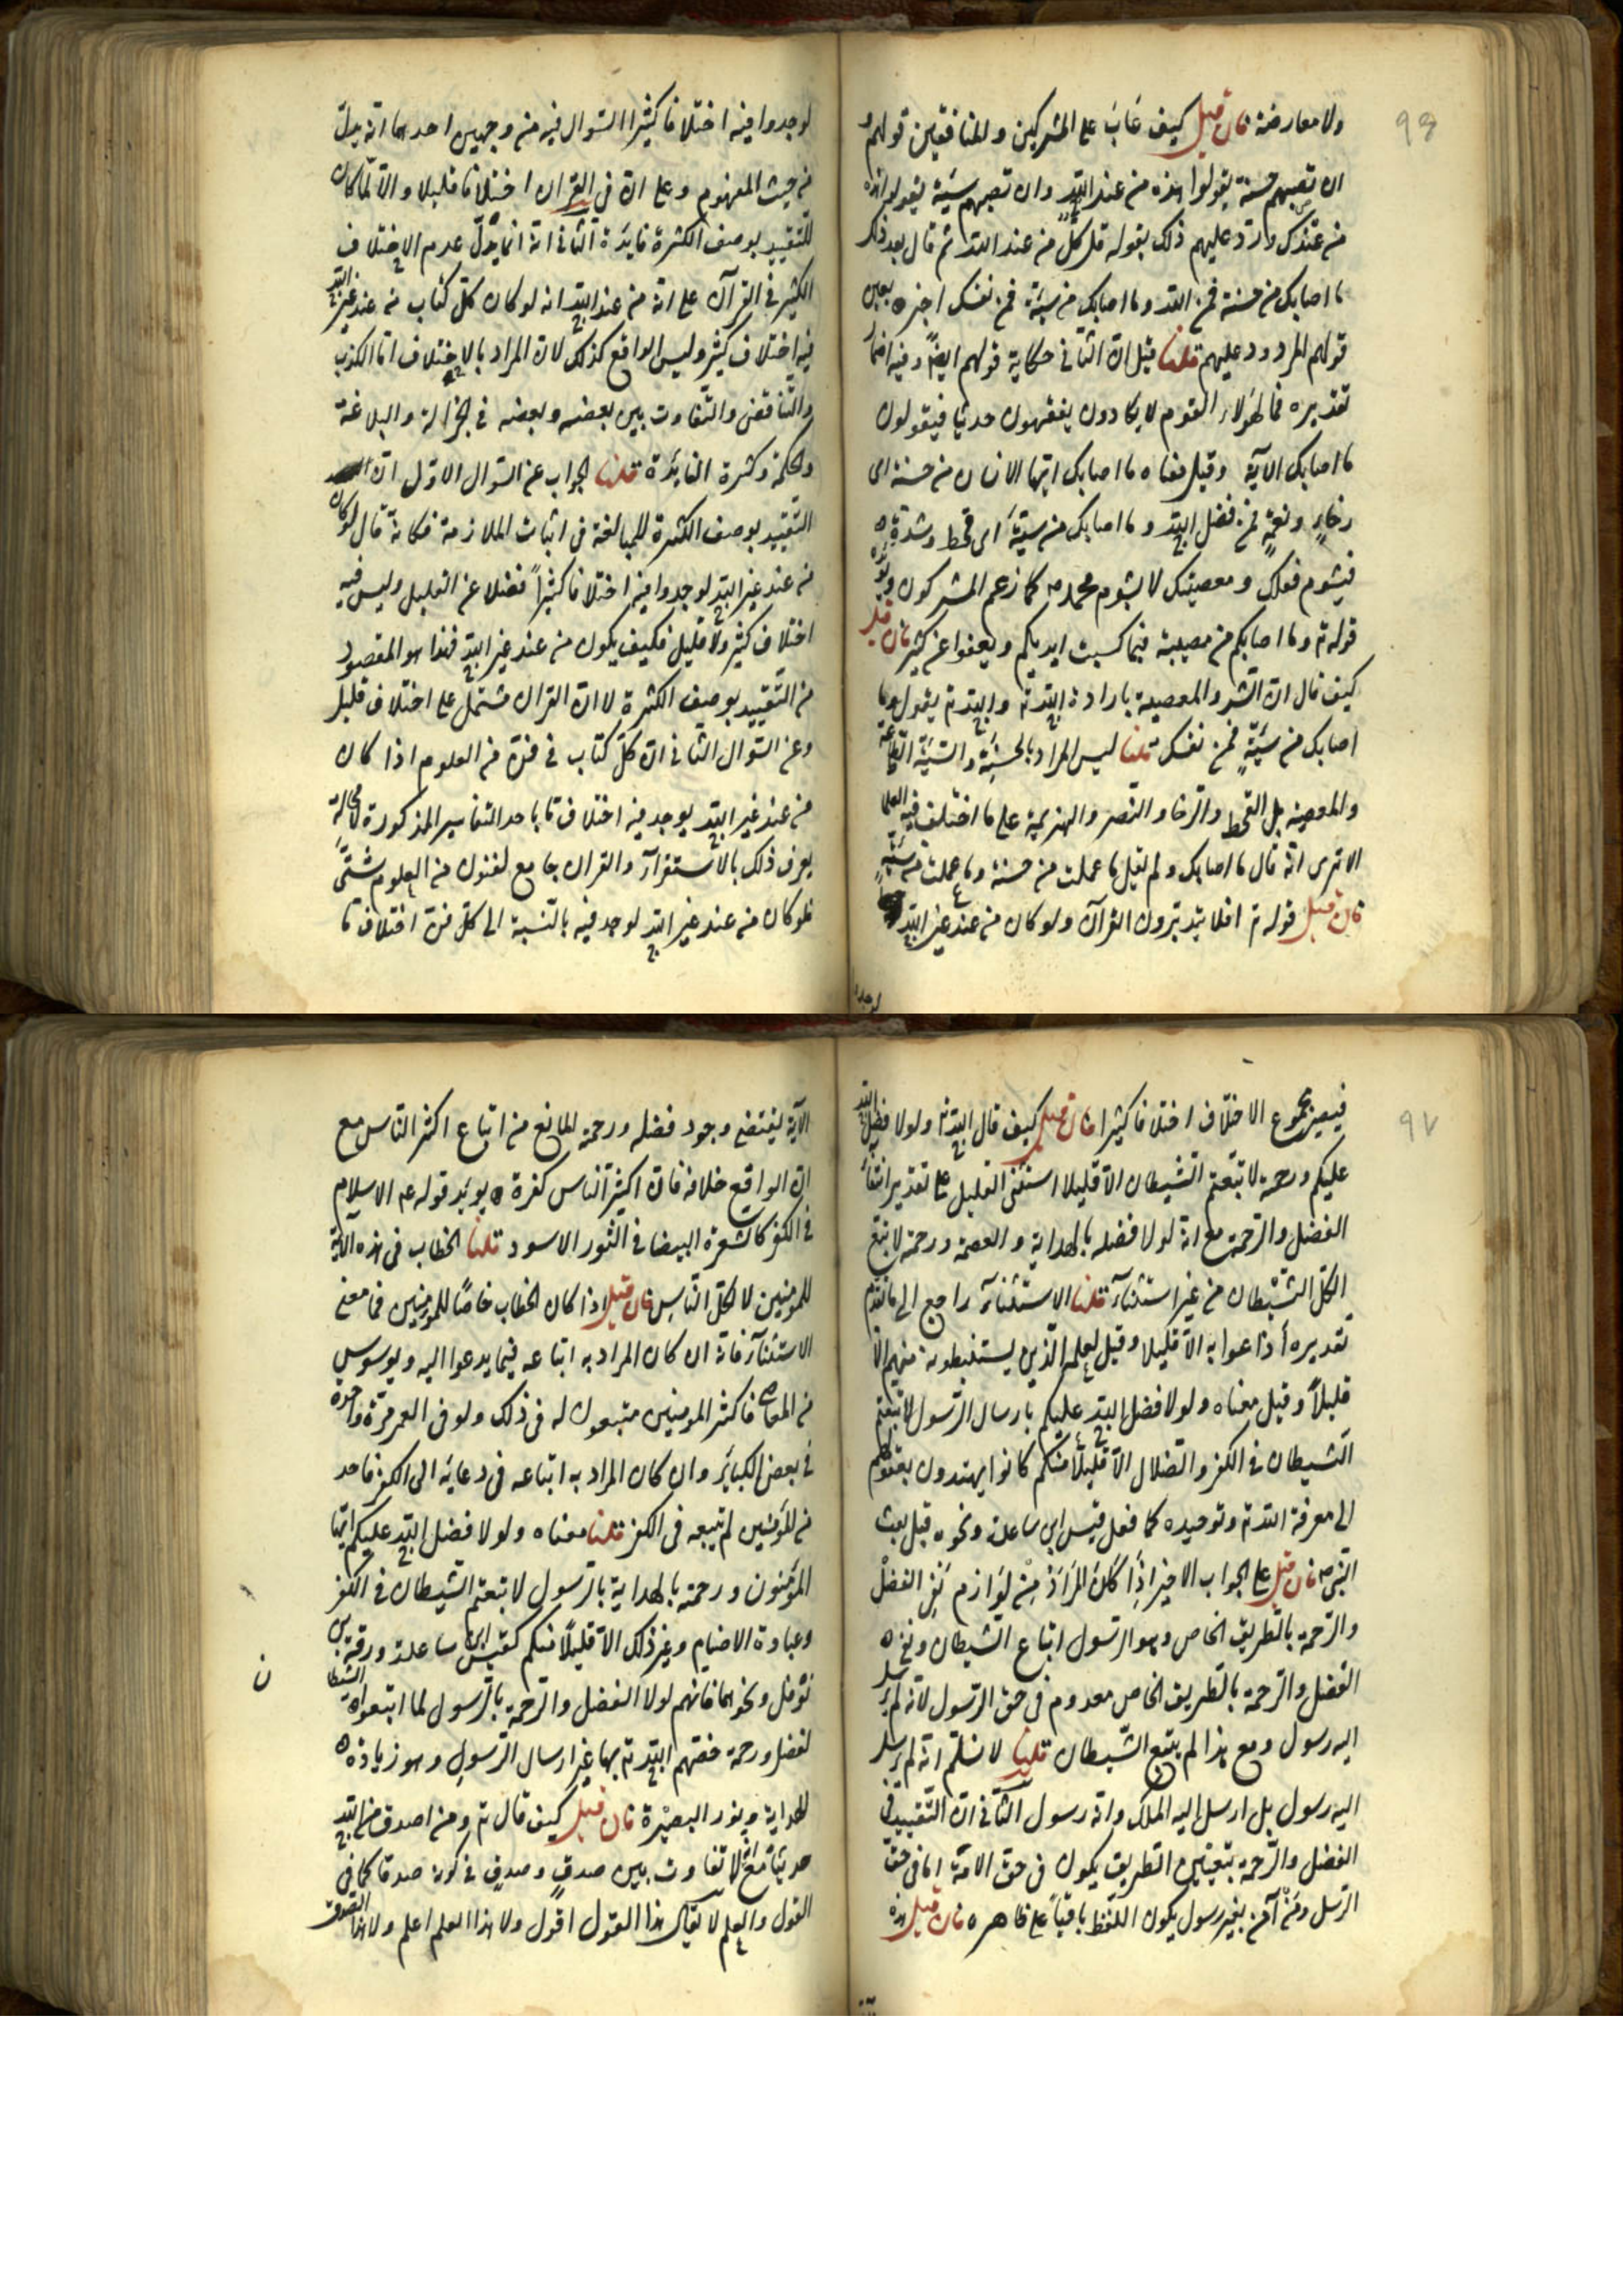 ٩٦
ولا معارضة فان قيل كيف عاب على المشركين والمنافقين قولهم و
ان تصبهم حسنة يقولوا هذه من عند الله وان تصبهم سيئة يقولوا هذه
من عندك وردّ عليهم ذلك بقوله قل كلٌّ من عند الله ثم قال بعد ذلك
ما اصابك من حسنة فمن الله وما اصابك من سيئة فمن نفسك اخبره بعين
قولهم المردود عليهم قلنا قيل انّ الثاني حكاية قولهم ايضاً وفيه اضمار
تقديره فما لهؤلاء القوم لا يكادون يفقهون حديثا فيقولون
ما اصابك الآية وقيل معناه ما اصابك ايّها الانسان من حسنة اى
رخاءٍ ونعمةٍ فمن فضل الله وما اصابك من سيّئة اى قحط وشدّة
فبشوم فعلك ومعصيتك لا بشوم محمد ص كما زعم المشركون ويؤيده
قوله تع وما اصابكم من مصيبة فبما كسبت ايديكم ويعفوا عن كثير فان قيل
كيف قال انّ الشر والمعصية بارادة الله تع والله تع يقول وما
اصابك من سيّئةٍ فمن نفسك قلنا ليس المراد بالحسنة والسيّئة الطاعة
والمعصية بل القحط والرخا والنصر والهزيمة على ما اختلف فيه العلما
الا ترى انّه قال ما اصابك ولم يقل ما عملت من حسنة وما عملت من سيّئة
فان قيل قوله تع افلا يتدبّرون القرآن ولو كان من عند غير الله
لوجدوا
لوجدوا فيه اختلافا كثيرا السّوال فيه من وجهين احدهما انّه يدلّ
من حيث المفهوم وعلى انّ في القران اختلافا قليلا والّا لما كان
للتّقييد بوصف الكثرة فايدة الثّاني انّه انما يدلّ عدم الاختلاف
الكثير في القرآن على انّه من عند الله انه لو كان كلّ كتاب من عند غير الله
فيه اختلاف كثير وليس الواقع كذلك لانّ المراد بالاختلاف امّا الكذب
والتّناقض والتّفاوت بين بعضه وبعضه في الجزالة والبلاغة
والحكمة وكثرة الفايدة قلنا الجواب عن السّوال الاوّل انّ
التقييد بوصف الكثرة للمبالغة في اثبات الملازمة فكانّه قال لو كان
من عند غير الله لوجدوا فيه اختلافا كثيراً فضلا عن القليل وليس فيه
اختلاف كثير ولا قليل فكيف يكون من عند غير الله فهذا هو المقصود
من التّقييد بوصف الكثرة لا انّ القران مشتمل على اختلاف قليل
وعن السّوال الثّاني انّ كلّ كتاب في فنّ من العلوم اذا كان
من عند غير الله يوجد فيه اختلاف ما باحد التفاسير المذكورة لا محالة
يعرف ذلك بالاستقراء والقران جامع لفنون من العلوم شتّى
فلو كان من عند غير الله لوجد فيه بالنّسبة الى كلّ فنّ اختلاف ما
٩٧
فيصير مجموع الاختلاف اختلافا كثيرا فان قيل كيف قال الله تع ولولا فضل الله
عليكم ورحمته لاتبعتم الشيطان الّا قليلا استثنى القليل على تقدير انتفاء
الفضل والرّحمة مع انّه لولا فضله بالهداية والعصمة ورحمته لاتبع
الكلّ الشّيطان من غير استثناء قلنا الاستثناء راجع الى ما تقدّم
تقديره أذاعوا به الّا قليلا وقيل لعلمه الّذين يستنبطونه منهم الّا
قليلاً وقيل معناه ولولا فضل الله عليكم بارسال الرّسول لاتبعتم
الشيطان في الكفر والضّلال الّا قليلاً منكم كانوا يهتدون بعقولهم
الى معرفة الله تع وتوحيده كما فعل قيس ابن ساعدة ونحوه قبل بعث
النّبي ص فان قيل على الجواب الاخير اذا كان المراد من لوازم نفي الفضل
والرّحمة بالطّريق الخاص وهو الرّسول اتباع الشيطان ونفى
الفضل والرّحمة بالطريق الخاص معدوم في حقّ الرّسول لانّه لم يرسل
اليه رسول ومع هذا لم يتبع الشّيطان قلنا لا نسلّم انّه لم يرسل
اليه رسول بل ارسل اليه الملك وانّه رسول الثّاني انّ التّقييد في
الفضل والرّحمة بتعيين الطريق يكون في حقّ الامّة امّا في حقّ
الرّسل ومن آمن بغير رسول يكون اللفظ باقياً على ظاهره فان قيل هذه
الآية
الآية يقتضى وجود فضله ورحمته المانع من اتباع اكثر النّاس مع
انّ الواقع خلافه فانّ اكثر النّاس كفرة يؤيد قوله عم الاسلام
في الكفر كالشّعرة البيضا في الثور الاسود قلنا الخطاب في هذه الآية
للمؤمنين لا لكلّ النّاس فان قيل اذا كان الخطاب خاصّاً للمؤمنين فما معنى
الاستثناء فانّه ان كان المراد به اتباعه فيما يدعوا اليه ويوسوس
من المعاصي فاكثر المؤمنين متبعون له في ذلك ولو في العمر مرّة واحدة
في بعض الكبائر وان كان المراد به اتباعه في دعائه الى الكفر فاحد
من المؤمنين لم يتبعه في الكفر قلنا معناه ولولا فضل الله عليكم ايّها
المؤمنون ورحمته بالهداية بالرّسول لاتبعتم الشّيطان في الكفر
وعبادة الاصنام وغير ذلك الّا قليلاً منكم كقيس ابن ساعدة وورقة بن
نوفل ونحوهما فانهم لولا الفضل والرّحمة بالرّسول لما اتبعوا الشيطان
ن
لفضل ورحمة خصّهم الله تع بها غير ارسال الرّسول وهو زيادة
الهداية ونور البصيرة فان قيل كيف قال تع ومن اصدق من الله
حديثاً مع انّه لا تفاوت بين صدقٍ وصدقٍ في كونه صدقا كما في
القول والعلم لا يقال هذا القول اقول ولا هذا العلم اعلم ولا هذا الصدق